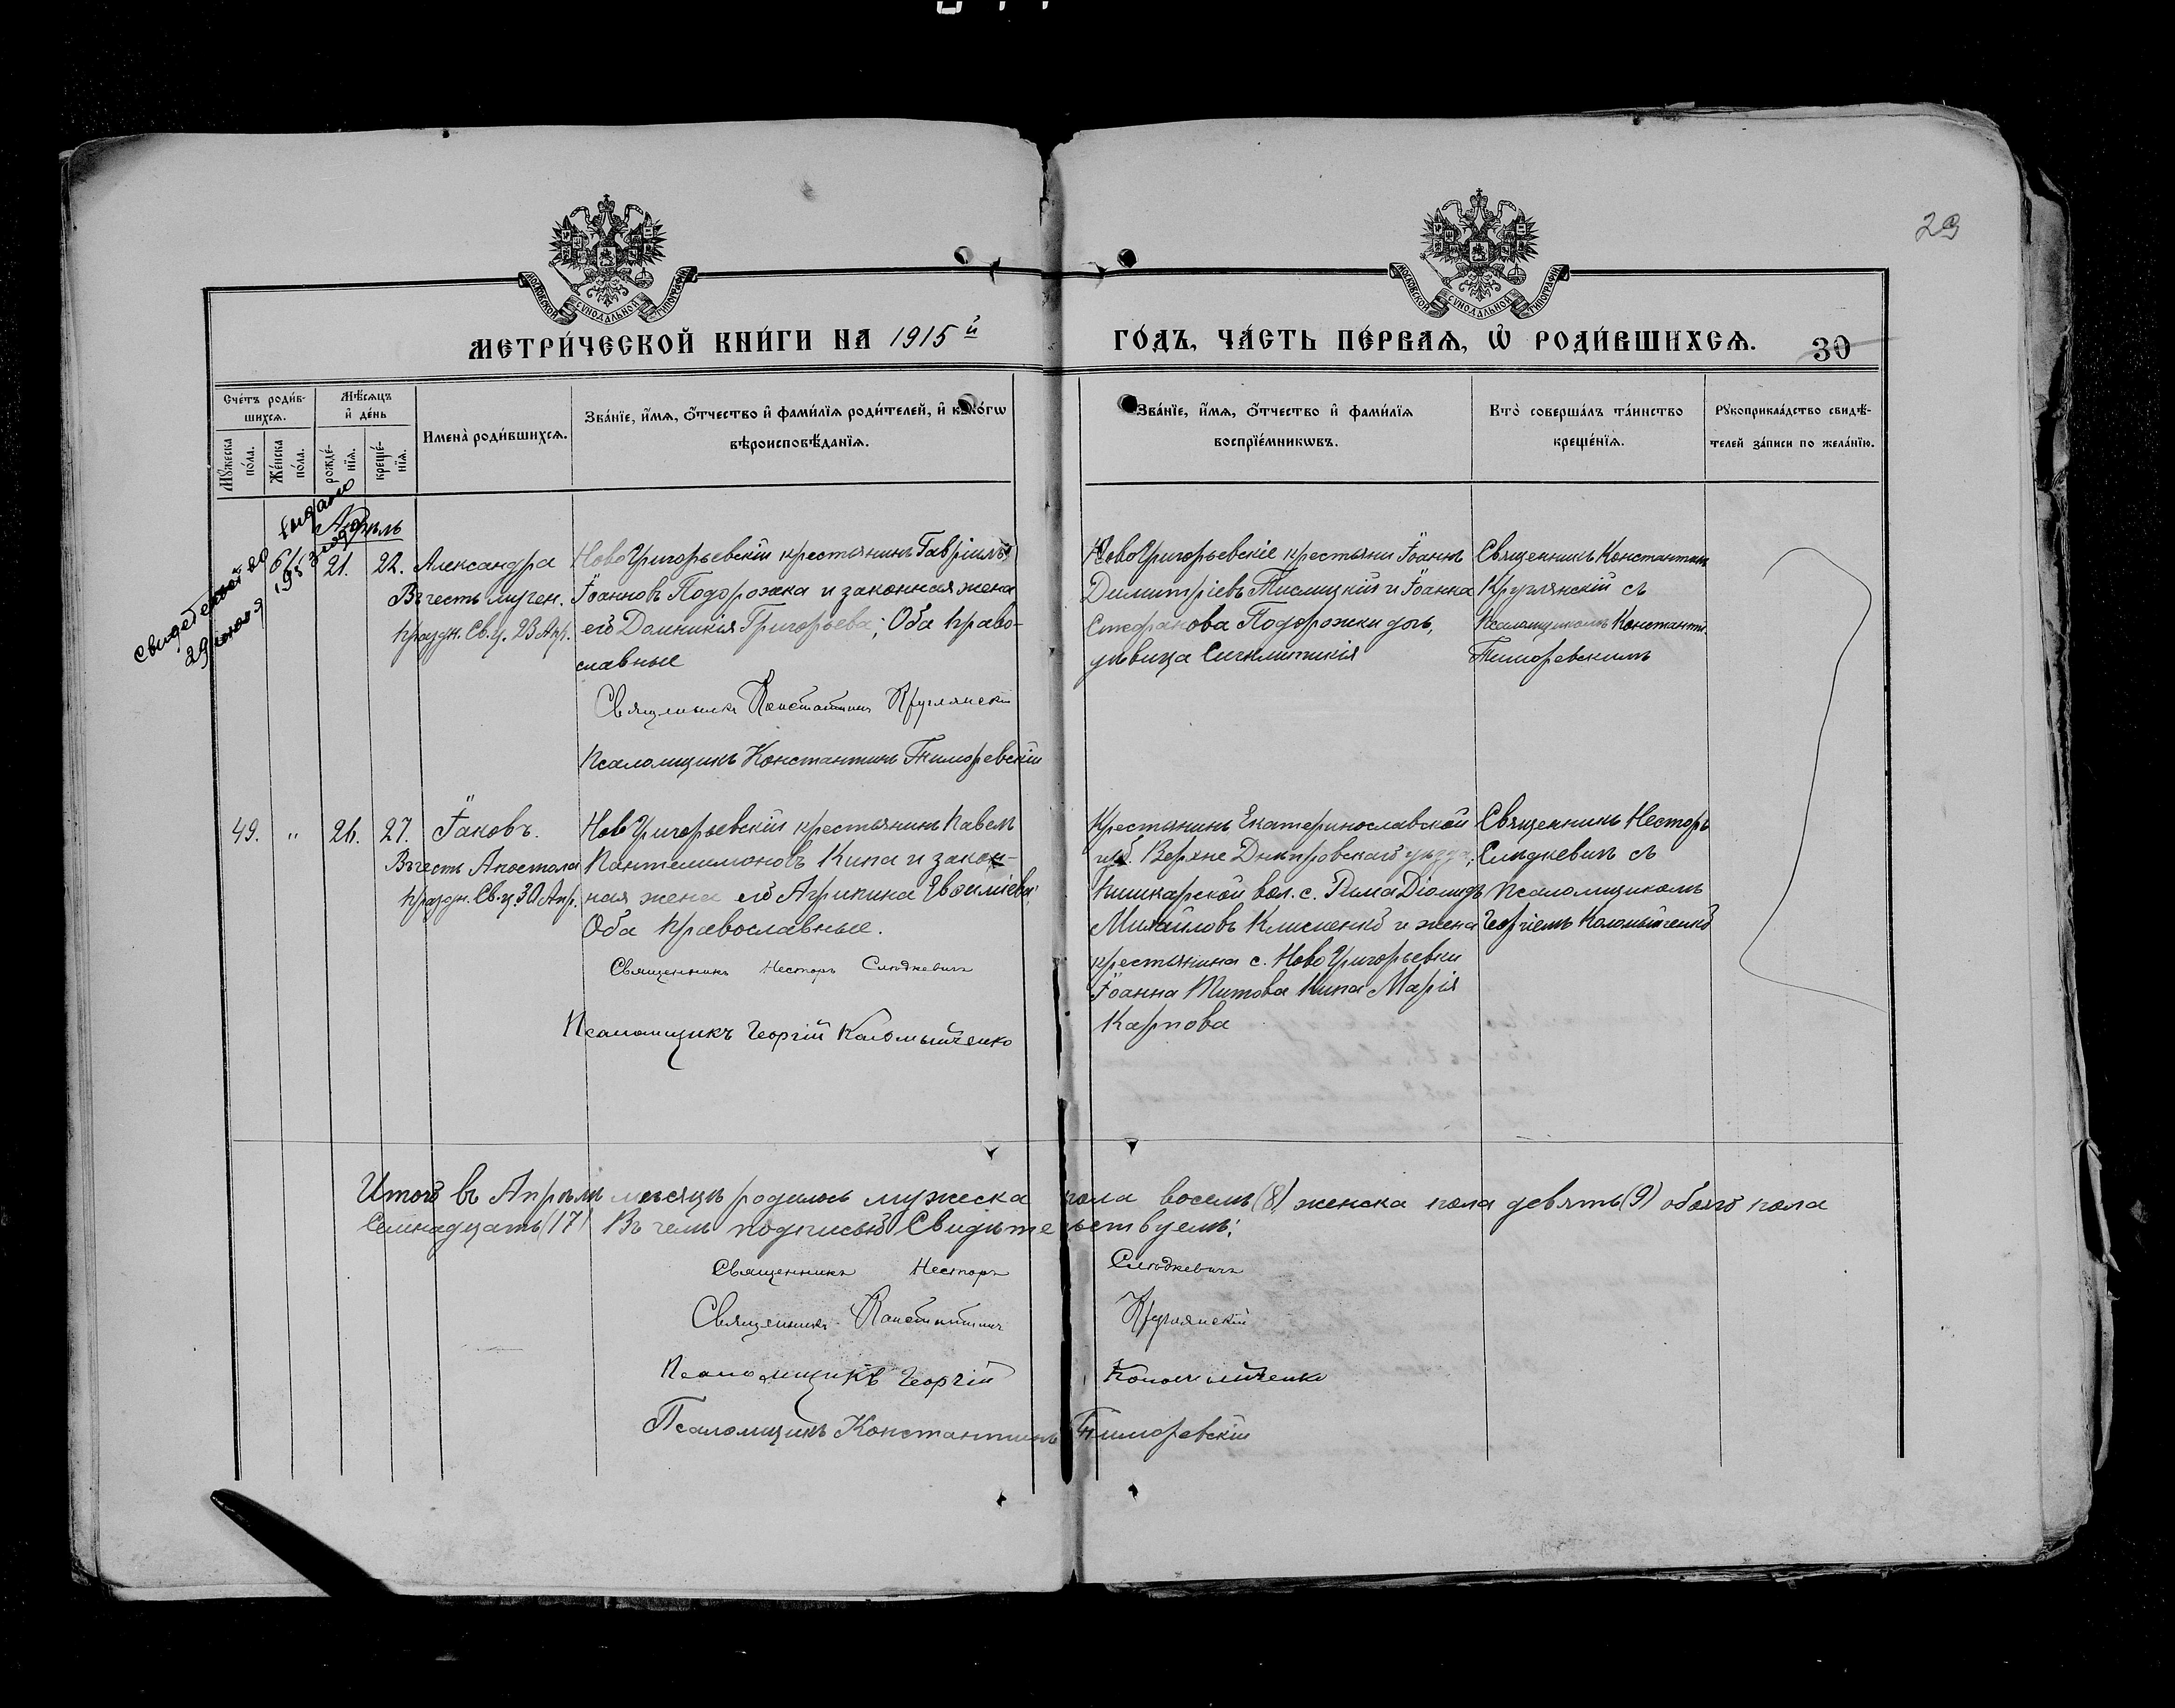 29
МОСКОВСКОЙ СѴНОДАЛЬНОЙ ТИПОГРАФІИ
МОСКОВСКОЙ СѴНОДАЛЬНОЙ ТИПОГРАФІИ
МЕТРИ́ЧЕСКОЙ КНИ́ГИ НА 1915й
ГО́ДЪ, ЧА́СТЬ ПЕ́РВАѦ, Ѡ҆ РОДИ́ВШИХСѦ. 30
Сче́тъ роди́в-
шихсѧ.
Мѣ́сѧцъ
и҆ де́нь
Мꙋ́жеска
по́ла.
Же́нска
по́ла.
рожде́-
нїѧ.
креще́-
нїѧ.
Имена̀ роди́вшихсѧ.
Зва́нїе, и҆́мѧ, ѻ҆́тчество и҆ фами́лїѧ роди́телей, и҆ како́гѡ
вѣроисповѣ́данїѧ.
Зва́нїе, и҆́мѧ, ѻ҆́тчество и҆ фами́лїѧ
воспрїе́мникѡвъ.
Кто̀ соверша́лъ та́инство
креще́нїѧ.
Рꙋкоприкла́дство свидѣ́-
телей за́писи по жела́нїю.
выдано
29 июля 195
Апрѣль
21. 22. Александра
Въ честь мучен.
праздн. Св. ц. 23 Апр.
НовоГригорьевскій крестьянинъ Гавріилъ
Іоанновъ Подорожка и законная жена
его Домникія Григорьева; Оба право-
славные
Священникъ Константинъ Круглянскій
Псаломщикъ Константинъ Тиморевскій
НовоГригорьевскіе крестьяни Іоаннъ
Димитріевъ и Іоанна
Стефанова Подорожки дочь,
дѣвица Синклитикія
Священникъ Константинъ
Круглянскій съ
Псаломщикомъ Константи.
Тиморевскимъ
49. " 26. 27. Іаковъ.
Въ честь Апостола
праздн. Св. ц. 30 Апр.
НовоГригорьевскій крестьянинъ Павелъ
Пантелимоновъ Кипа и закон-
ная жена его Агрипина Евѳиміева;
Оба православные.
Священникъ Несторъ Слѣдкевичъ
Псаломщикъ Георгій Коломыйченко
Крестьянинъ Екатеринославской
губ. Верхне Днѣпровскаго уѣзда,
вол. с. Діомидъ
Михайловъ Клименко и жена
крестьянина с. НовоГригорьевки
Іоанна Титова Кипа Марія
Карпова
Священникъ Несторъ
Слѣдкевичъ съ
Псаломщикомъ
Георгіемъ Коломыйченко
Итого въ Апрѣлѣ мѣсяцѣ родилось мужеска пола восемь (8) женска пола девять (9) обоего пола
Семнадцать (17) Въ чемъ подписью Свидѣтельствуемъ:
Священникъ Несторъ Слѣдкевичъ
Священникъ Константинъ Круглянскій
Псаломщикъ Георгій Коломыйченко
Псаломщикъ Константинъ Тиморевскій